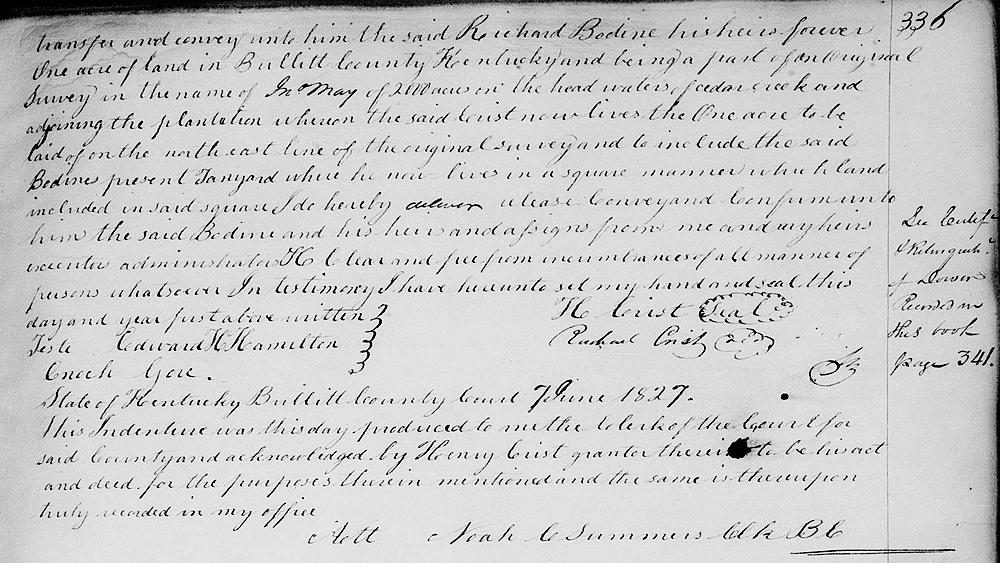 336
transfer and convey unto him the said Richard Bodine his heirs forever
One acre of land in Bullitt County Kentucky and being a part of an Original
Survey in the name of Jno May of 2000 acres on the head waters of cedar creek and
adjoining the plantation whereon the said Crist now lives the One acre to be
laid of on the north east line of the original survey and to include the said
Bodines present Tanyard where he now lives in a square manner which land
included in said square I do hereby release Convey and Confirm unto
him the said Bodine and his heirs and assigns from me and my heirs
executors administrators &C Clear and free from incumbrances of all manner of
persons whatsoever In testimony I have hereunto set my hand and seal this
day and year first above written
H Crist Seal
Teste Edward H Hamilton
Rachael Crist
Enoch Gore.
See Certif
& Relinquish
of Dower
Recorded in
this book
page 341.
State of Kentucky Bullitt County Court 7 June 1827.
This Indenture was this day produced to me the Clerk of the Court for
said County and acknowledged by Henry Crist grantor therein to be his act
and deed for the purposes therein mentioned and the same is thereupon
truly recorded in my office
Att Noah C Summers Clk BC